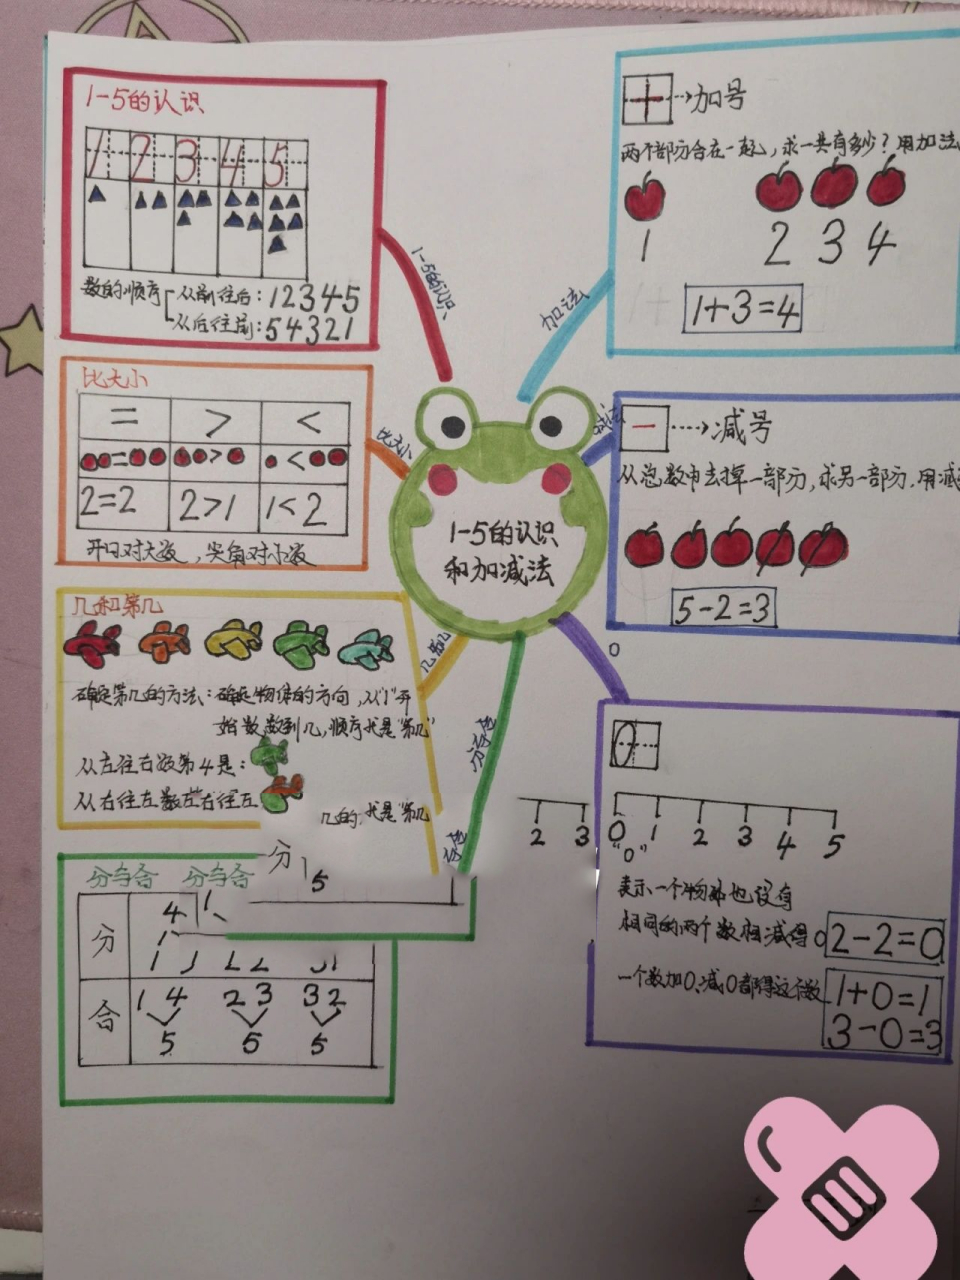 1-5的认识
1 2 3 4 5
数的顺序
从前往后:12345
从后往前:54321
1-5的认识
比大小
= > <
= > <
2=2 2>1 1<2
开口对大数,尖角对小数
比大小
几和第几
确定第几的方法:确定物体的方向,从"1"开
始数,数到几,顺序就是"第几"
从左往右数第4是:
几的,就是"第几
分与合 分与合
分
5
分 4
合 1 4 2 3 3 2
5 5 5
1-5的认识
和加减法
加法
+ 加号
两个部分合在一起,求一共有多少?用加法
1 2 3 4
1+3=4
- 减号
从总数中去掉一部分,求另一部分,用减
5-2=3
0
0
2 3
0 1 2 3 4 5
"0"
表示一个物体也没有
相同的两个数相减得0
2-2=0
一个数加0、减0都得这个数
1+0=1
3-0=3